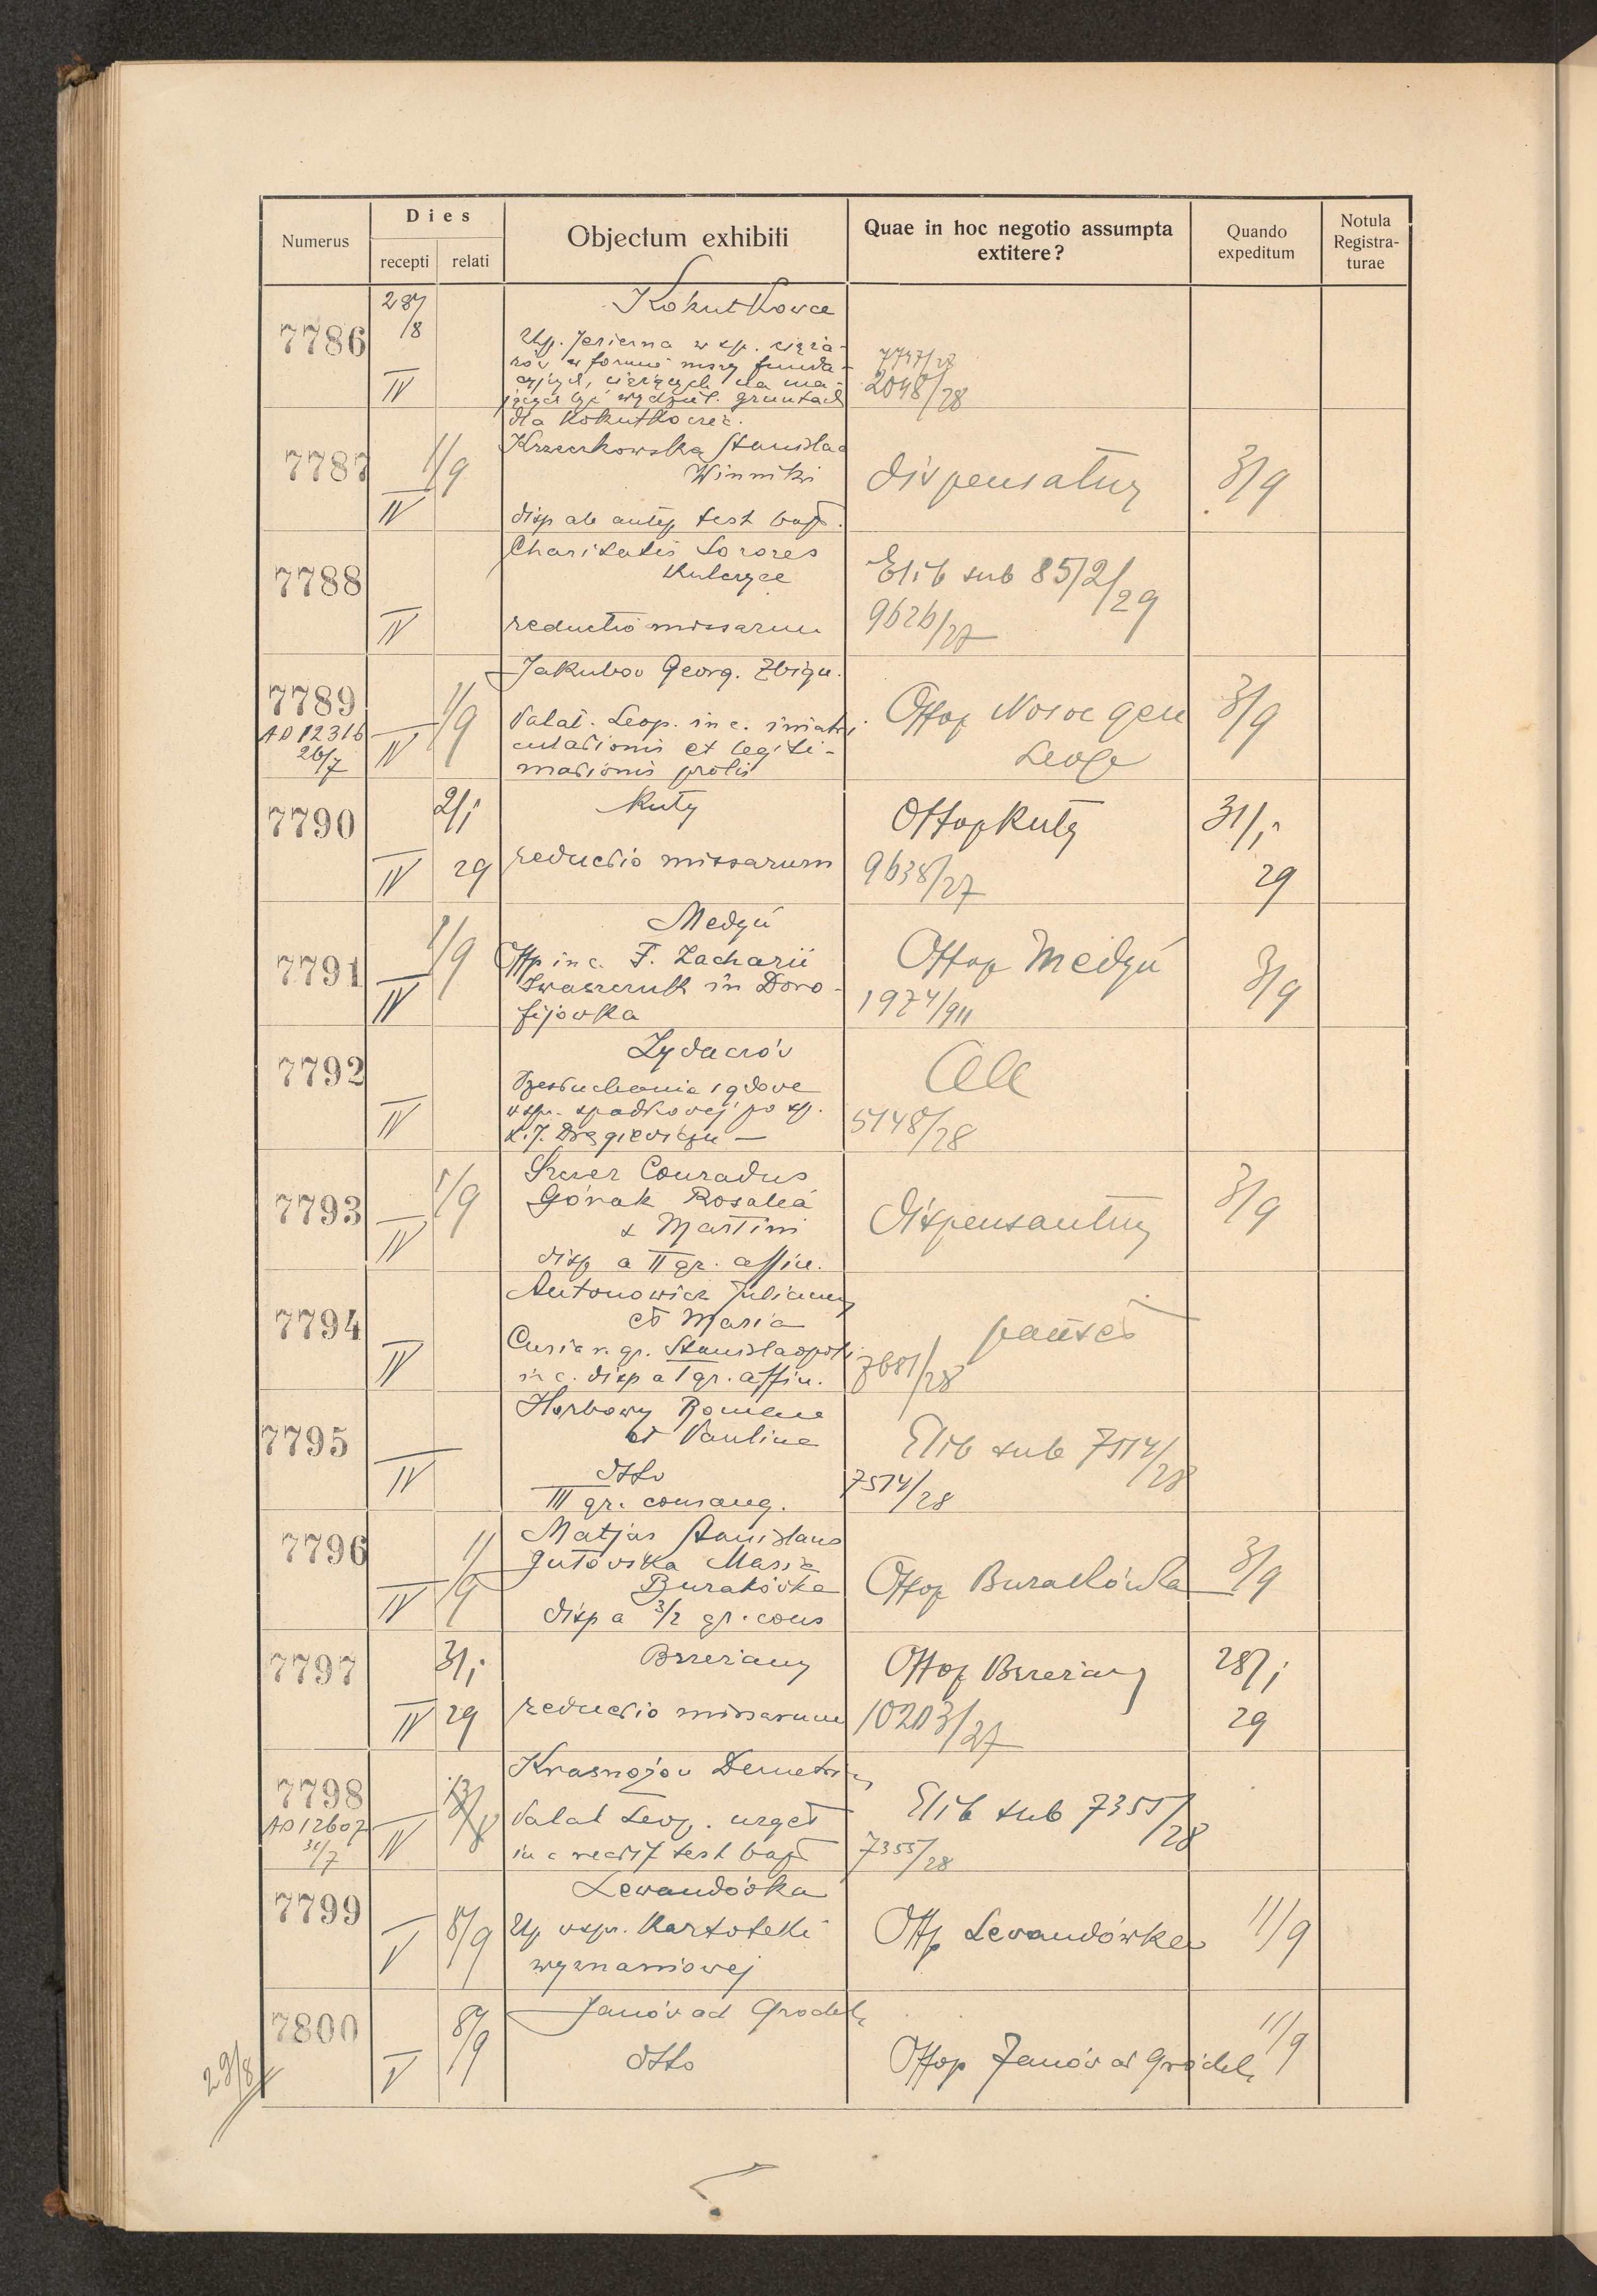 Numerus
Dies
recepti relati
Objectum exhibiti
Quae in hoc negotio assumpta extitere?
Quando expeditum
Notula Registra-turae
7786
28/8
IV
Kokutkowce
Up. Jezierna w sp. cięża-
rów w formie mszy funda-
cyjnych, ciążących na ma-
jących być wydziel. gruntach
dla Kokutkowiec.
7747/28
2048/28
7787
1/9
IV
Krzeczkowska Stanislaa
Winniki
disp ab autep test bapt.
dispensatur
3/9
7788
IV
Charitatis Sorores
Kulczyce
reductio missarum
Elib sub 8572/29
9626/27
7789
AD 12316
26/7
1/9
IV
Jakubov Georg. Zbign.
Palat. Leop. in c. immatri
culationis et legiti-
mationis prolis
Offop Nosoc gen
Leop
3/9
7790
2/1
29
IV
Kuty
reductio missarum
Offop Kuty
9638/27
31/1
29
7791
1/9
IV
Medyń
Offp in c. F. Zacharii
Iwaszczuk in Doro-
fijówka
Offop Medyń
1974/911
3/9
7792
IV
Żydaczów
Przesłuchanie sądowe
w spr. spadkowej po śp.
X. J. Drągiewiczu —
Ale
5148/28
7793
1/9
IV
Szwer Conradus
Górak Rosalia
x Martini
disp a II gr. affin.
Dispensantur
3/9
7794
IV
Antonowicz Julianus
et Maria
Curia r. gr. Stanislaopoli
in c. disp a I gr. affin.
7681/28
7795
IV
Horbowy Romana
et Paulina
dtto
III gr. consang.
Elib sub 7514/28
7514/28
7796
1/9
IV
Matjas Stanislaus
Gutowska Maria
Burakówka
disp a 3/2 gr. cons
Offop Burakówka
3/9
7797
3/1
29
IV
Brzeżany
reductio missarum
Offop Brzeżany
10203/27
28/1
29
7798
AD 12607
31/7
IV
Krasnojou Demetrius
Palat Leop. urget
in c rectif test bapt
Elib sub 7355/28
7355/28
7799
8/9
V
Lewandówka
Up w spr. Kartoteki
wyznaniowej
Offp Lewandówka
11/9
7800
8/9
V
Janów ad Gródek
dtto
Offop Janów ad Gródek
11/9
29/8